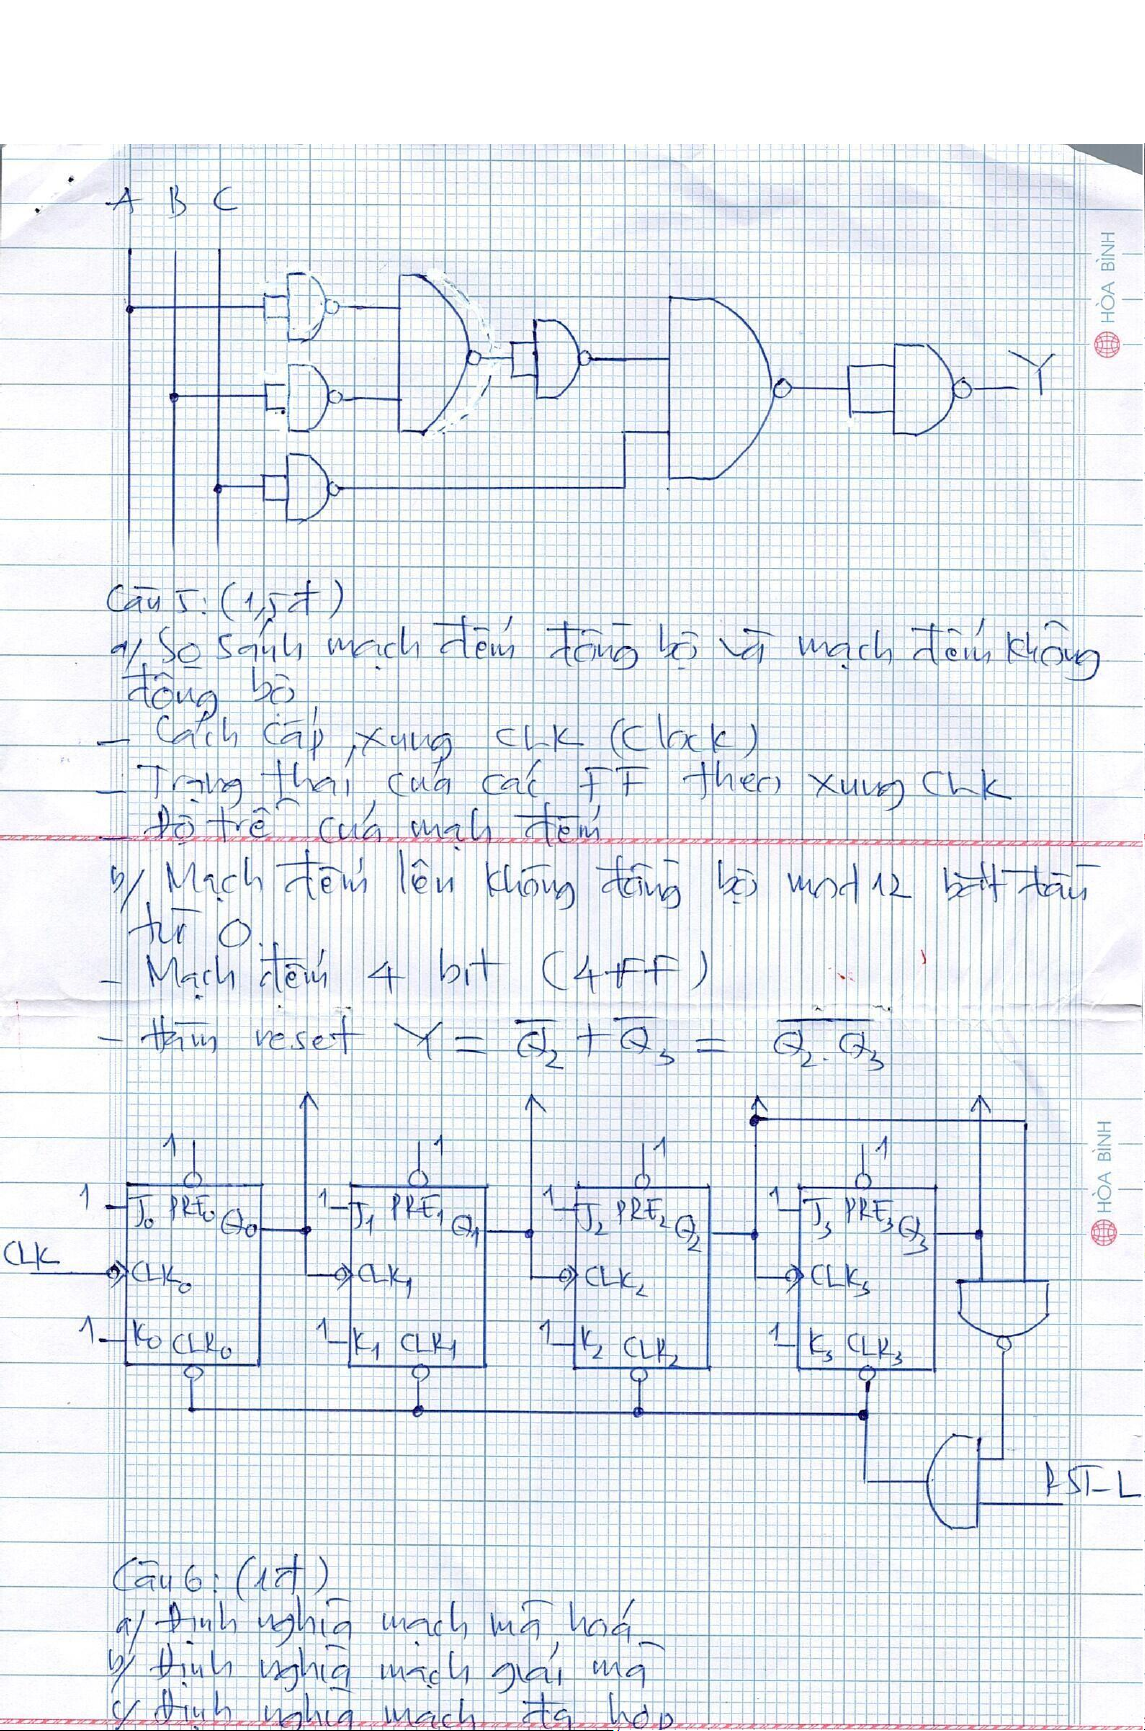 A B C
HÒA BÌNH
Y
Câu 5: (1,5đ)
a/ So sánh mạch đếm đồng bộ và mạch đếm không
đồng bộ
- Cách cấp xung CLK (Clock)
- Trạng thái của các FF theo xung CLK
- Độ trễ của mạh đếm
b/ Mạch đếm lên không đồng bộ mod 12 bắt đầu
từ 0.
- Mạch đếm 4 bit (4FF)
- Hàm reset Y = Q̅₂ + Q̅₃ = \overline{Q₂.Q₃}
1 1 1 1
1 J₀ PRE₀ Q₀ 1 J₁ PRE₁ Q₁ 1 J₂ PRE₂ Q₂ 1 J₃ PRE₃ Q₃
HÒA BÌNH
CLK CLK₀ CLK₁ CLK₂ CLK₃
1 K₀ CLR₀ 1 K₁ CLR₁ 1 K₂ CLR₂ 1 K₃ CLR₃
RST_L
Câu 6: (1đ)
a/ Định nghĩa mạch mã hoá
b/ Định nghĩa mạch giải mã
c/ Định nghĩa mạch đa hợp